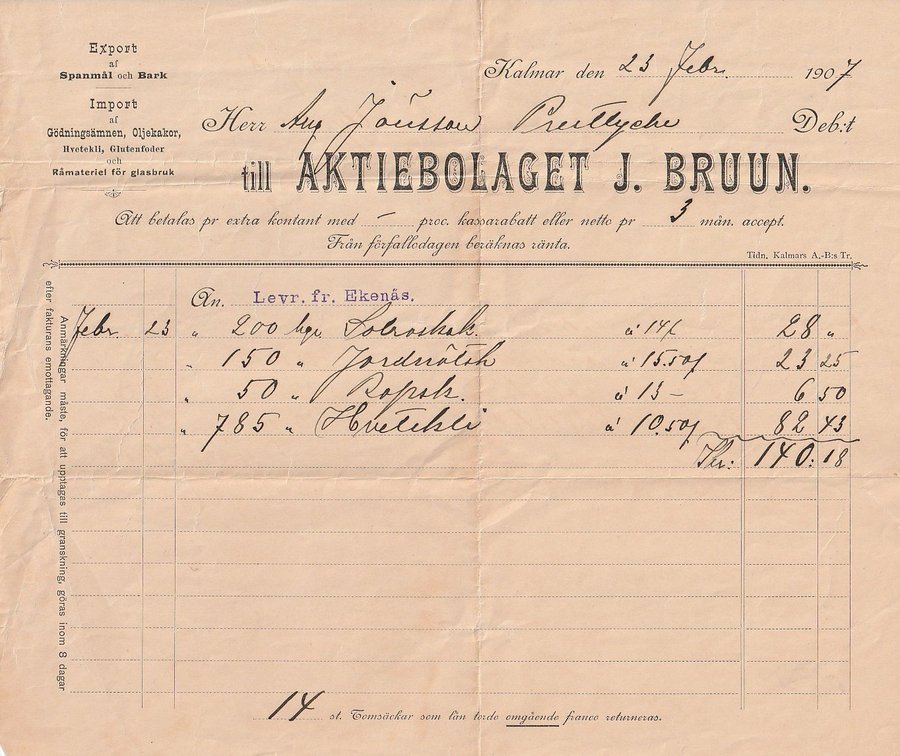 Export
af
Spanmål och Bark
Import
af
Gödningsämnen, Oljekakor,
Hvetekli, Glutenfoder
och
Råmateriel för glasbruk
Kalmar den 23 Febr. 1907
Herr Aug Jönsson Deb:t
till AKTIEBOLAGET J. BRUUN.
Att betalas pr extra kontant med – proc. kassarabatt eller netto pr 3 mån. accept.
Från förfallodagen beräknas ränta.
Tidn. Kalmars A.-B:s Tr.
An. Levr. fr. Ekenäs.
Febr. 23 " 200 kgr Solroskak. à 14 28 "
" 150 " Jordnötsk à 15.50 23 25
" 50 " Rapsk. à 13 – 6 50
" 785 " Hvetekli à 10.50 82 43
Kr: 140:18
Anmärkningar måste, för att upptagas till granskning, göras inom 8 dagar
efter fakturans emottagande.
14 st. Tomsäckar som lån torde omgående franco returneras.